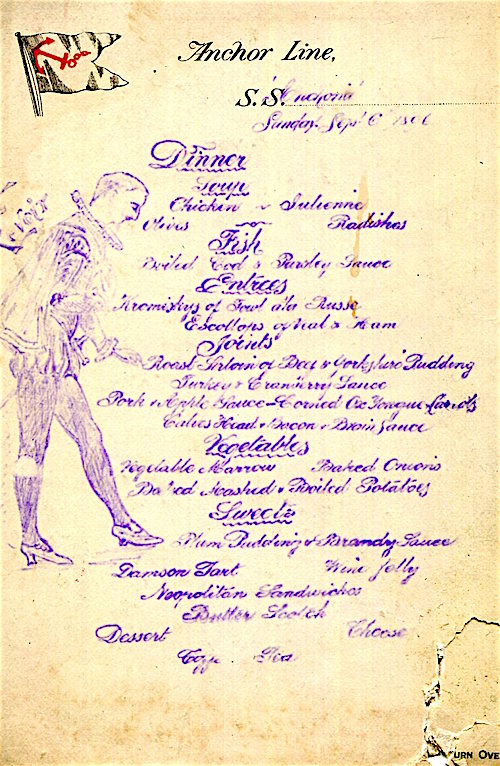 Anchor Line,
S.S.
Sunday. Sept 6
Dinner
Soup
Chicken & Julienne
Olives Radishes
Fish
Boiled Cod & Parsley Sauce
Entrees
Kromeskys of Fowl a'la Russe
Escollops of Veal & Ham
Joints
Roast Sirloin of Beef & Yorkshire Pudding
Turkey & Cranberry Sauce
Pork & Apple Sauce - Corned Ox Tongue
Calves Head & Bacon & Brain Sauce
Vegetables
Vegetable Marrow Baked Onions
Baked Mashed & Boiled Potatoes
Sweets
Plum Pudding & Brandy Sauce
Damson Tart Wine Jelly
Neopolitan Sandwiches
Butter Scotch
Dessert Cheese
Tea
URN OVE